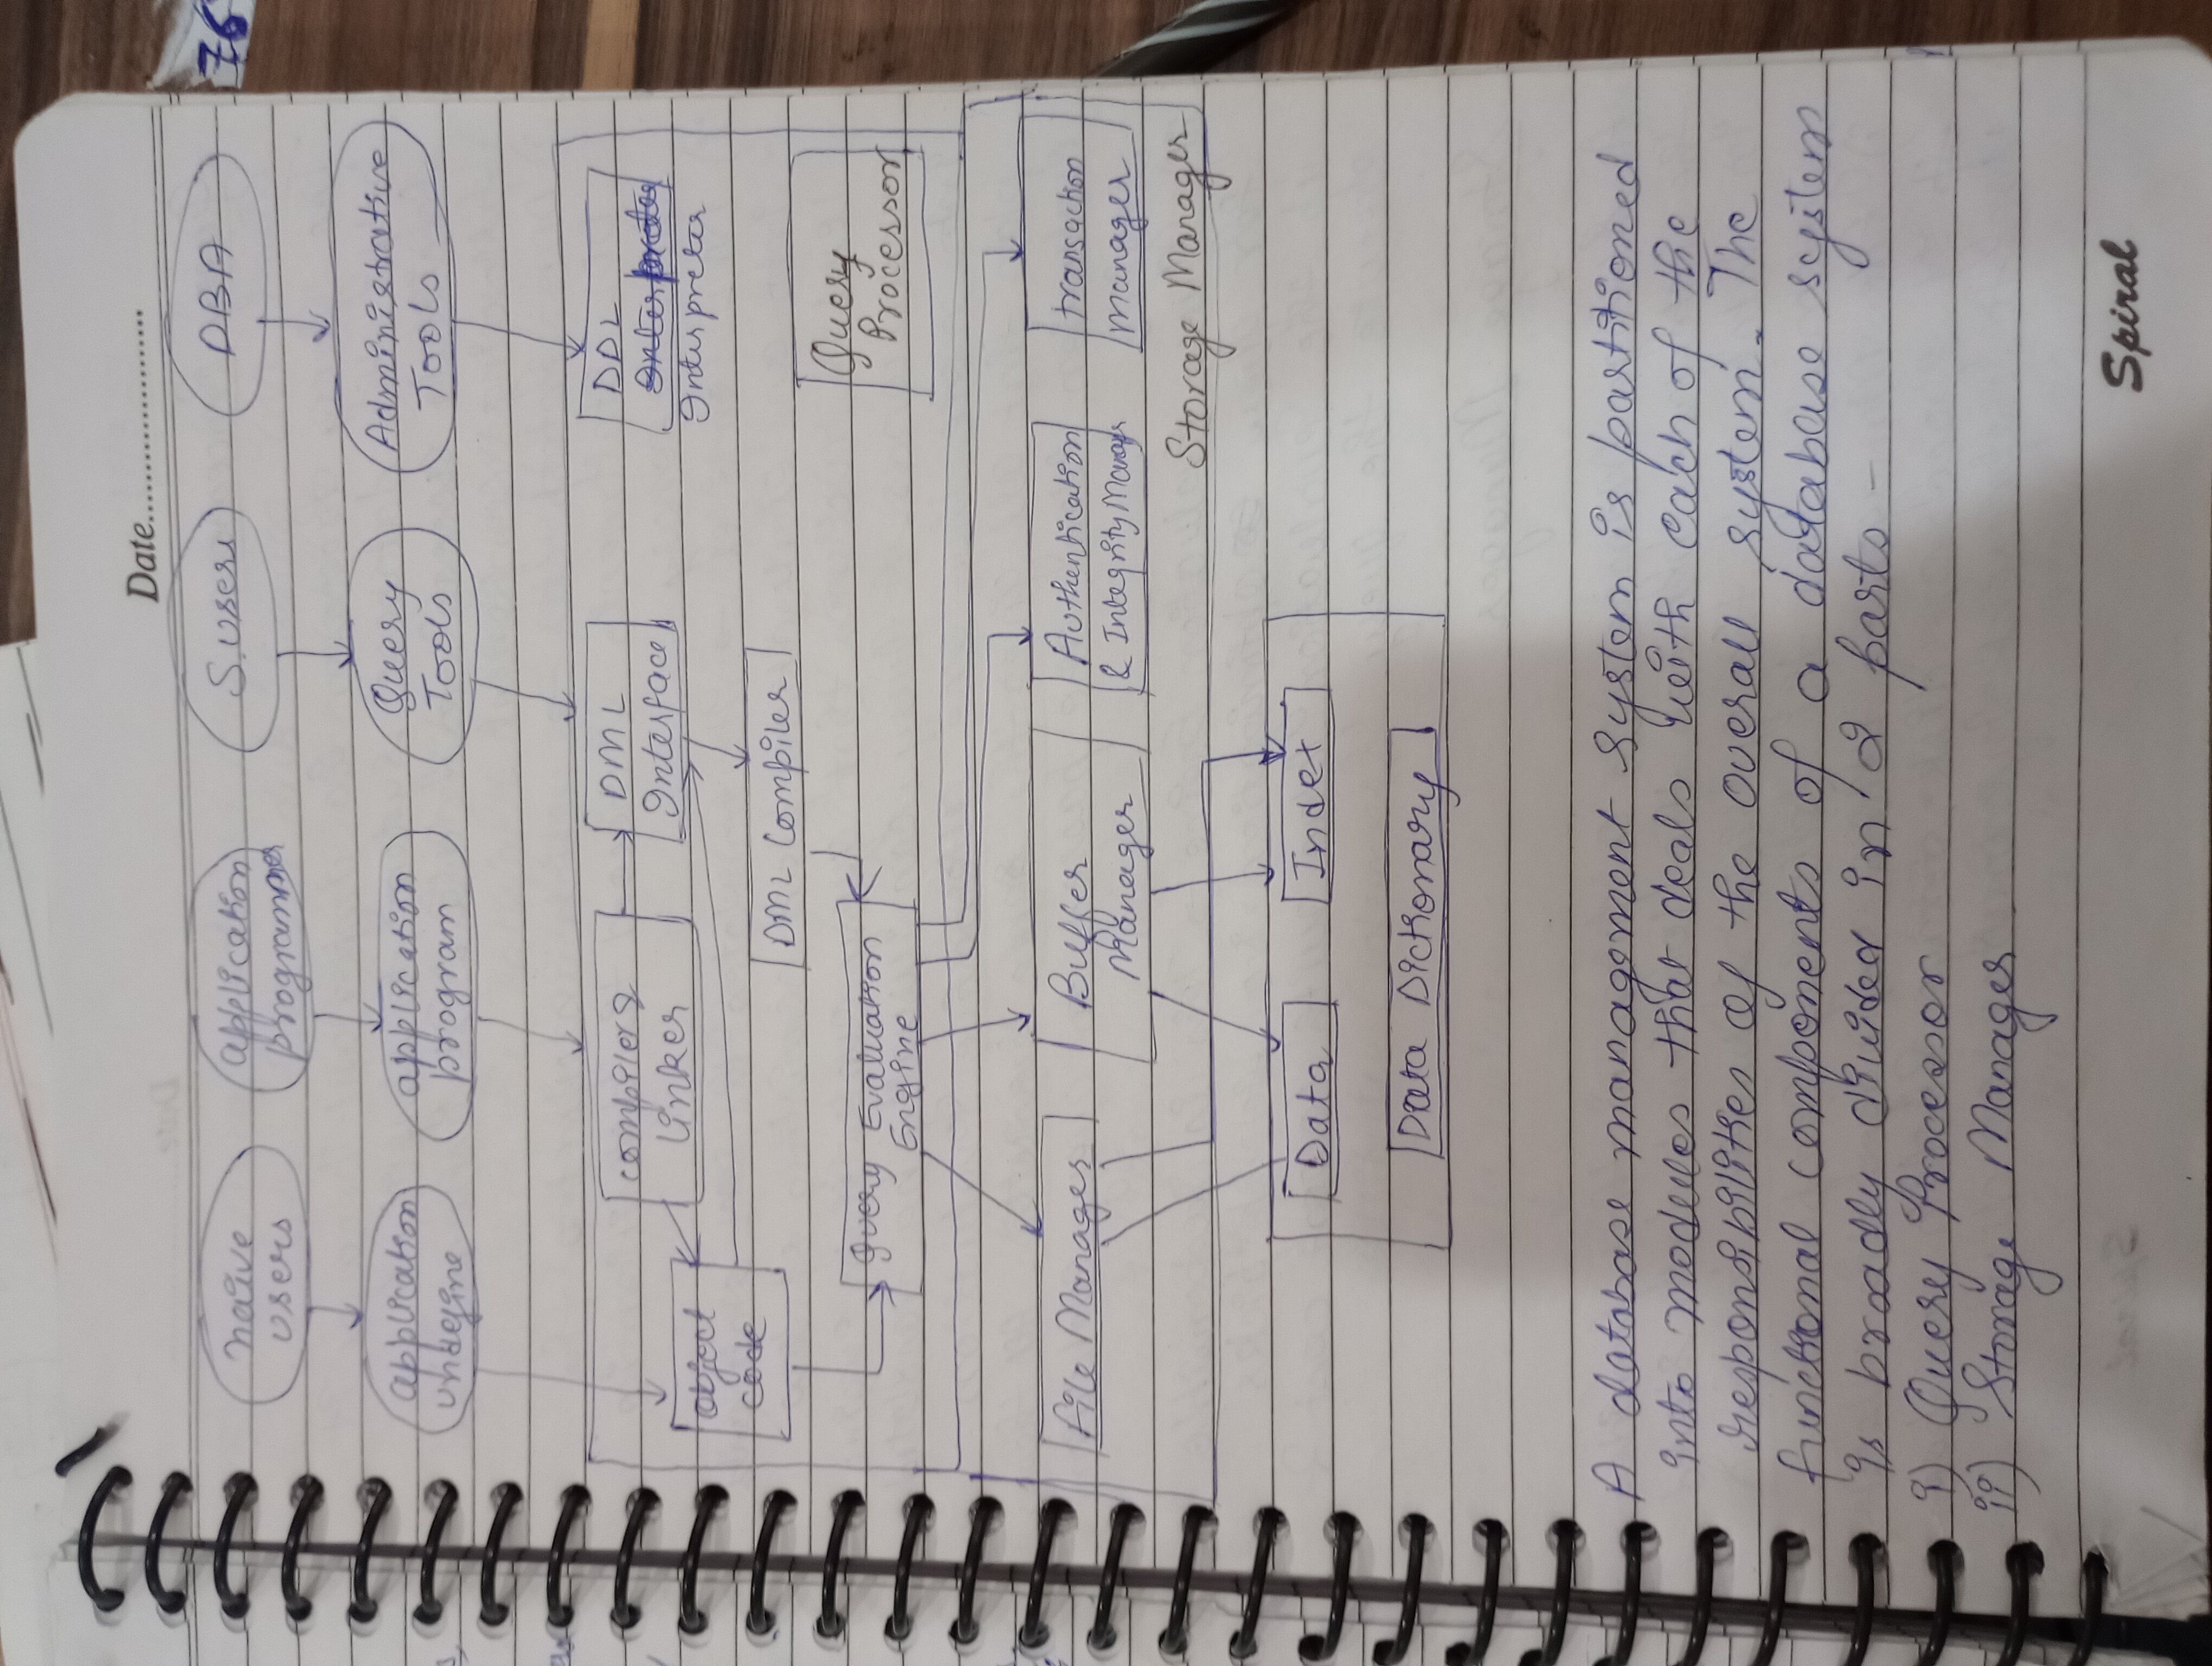 Date
76
naive
users
application
programmer
S.users
DBA
application
undefine
application
program
Query
Tools
Administrative
Tools
compiler &
linker
DML
Interface
DDL
Interpreter
object
code
DML Compiler
Query Evaluation
Engine
Query
Processor
File Manager
Buffer
Manager
Authentication
& Integrity Manager
transaction
manager
Storage Manager
Data
Index
Data Dictionary
A database management system is partitioned
into modules that deals with each of the
responsibilities of the overall system. The
functional components of a database system
is broadly divided in 2 parts -
i) Query Processor
ii) Storage Manager
Spiral